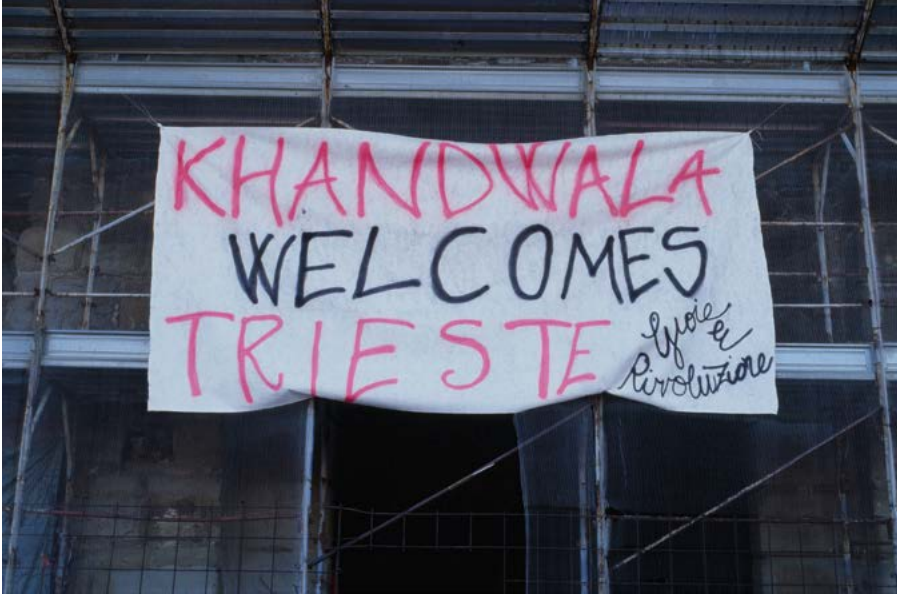 KHANDWALA
WELCOMES
TRIESTE
Gioie
e
Rivoluzione